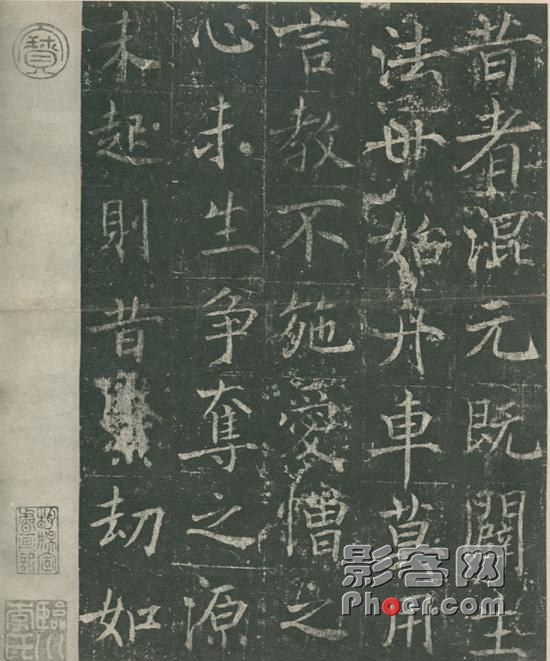 昔者混元既闢生
法毋始舟車莫用
言教不施愛憎之
心未生爭奪之源
未起則昔劫如
臨川李氏
影客网
Phoer.com